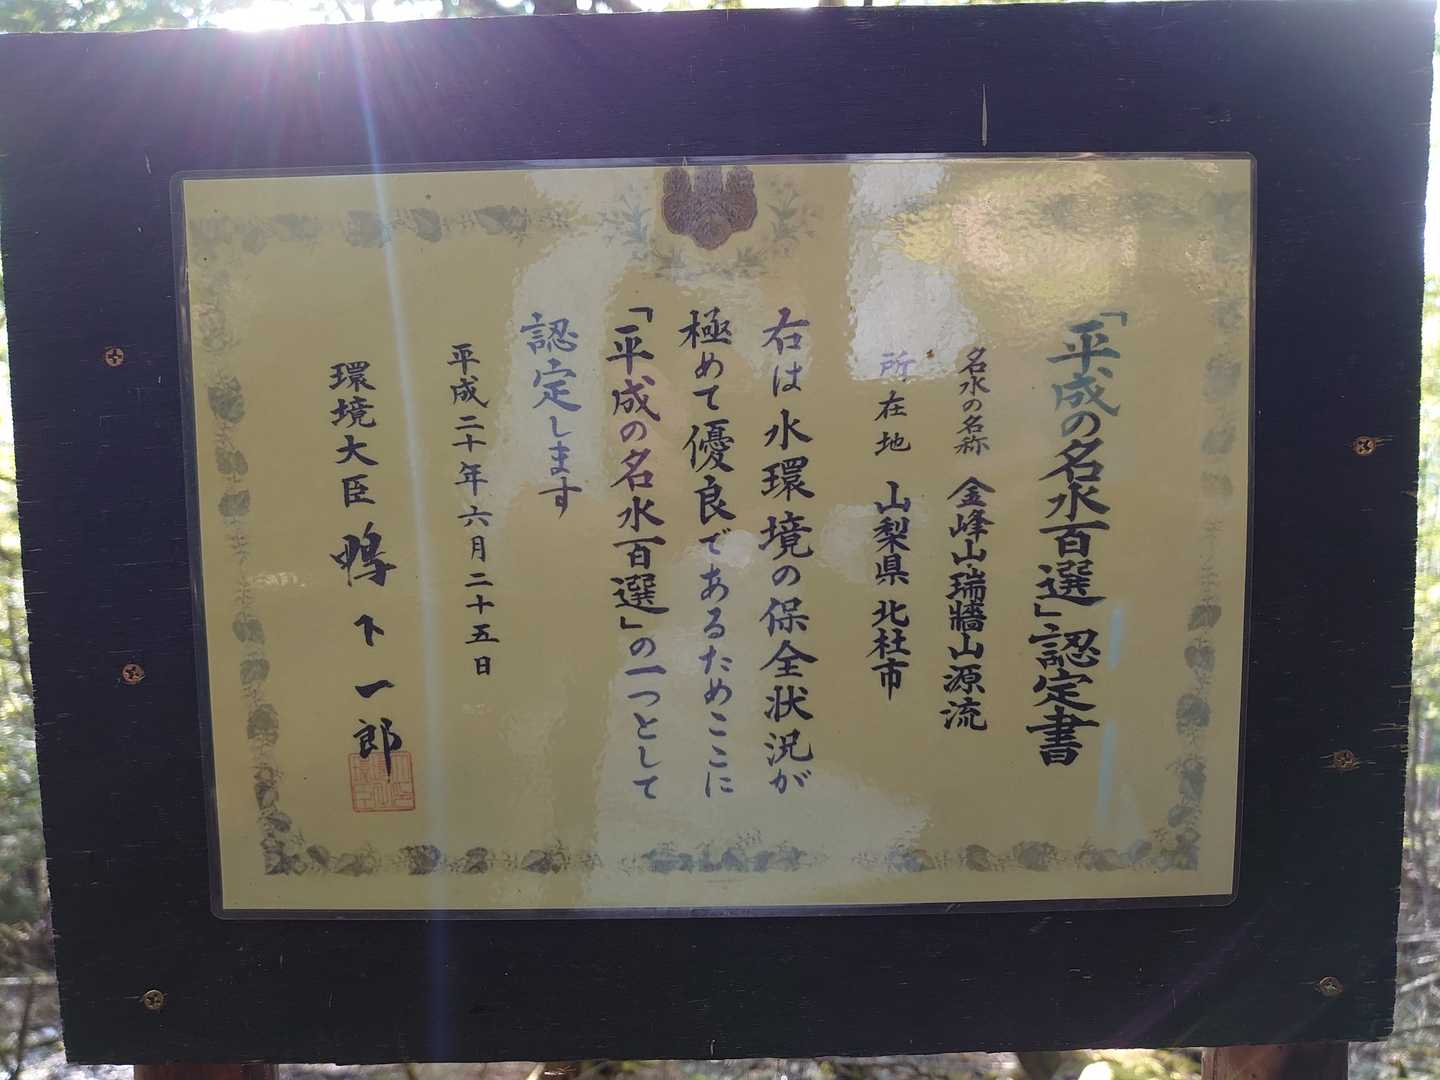 「平成の名水百選」認定書
名水の名称 金峰山・瑞牆山源流
所在地 山梨県 北杜市
右は水環境の保全状況が
極めて優良であるためここに
「平成の名水百選」の一つとして
認定します
平成二十年六月二十五日
環境大臣 鴨下一郎